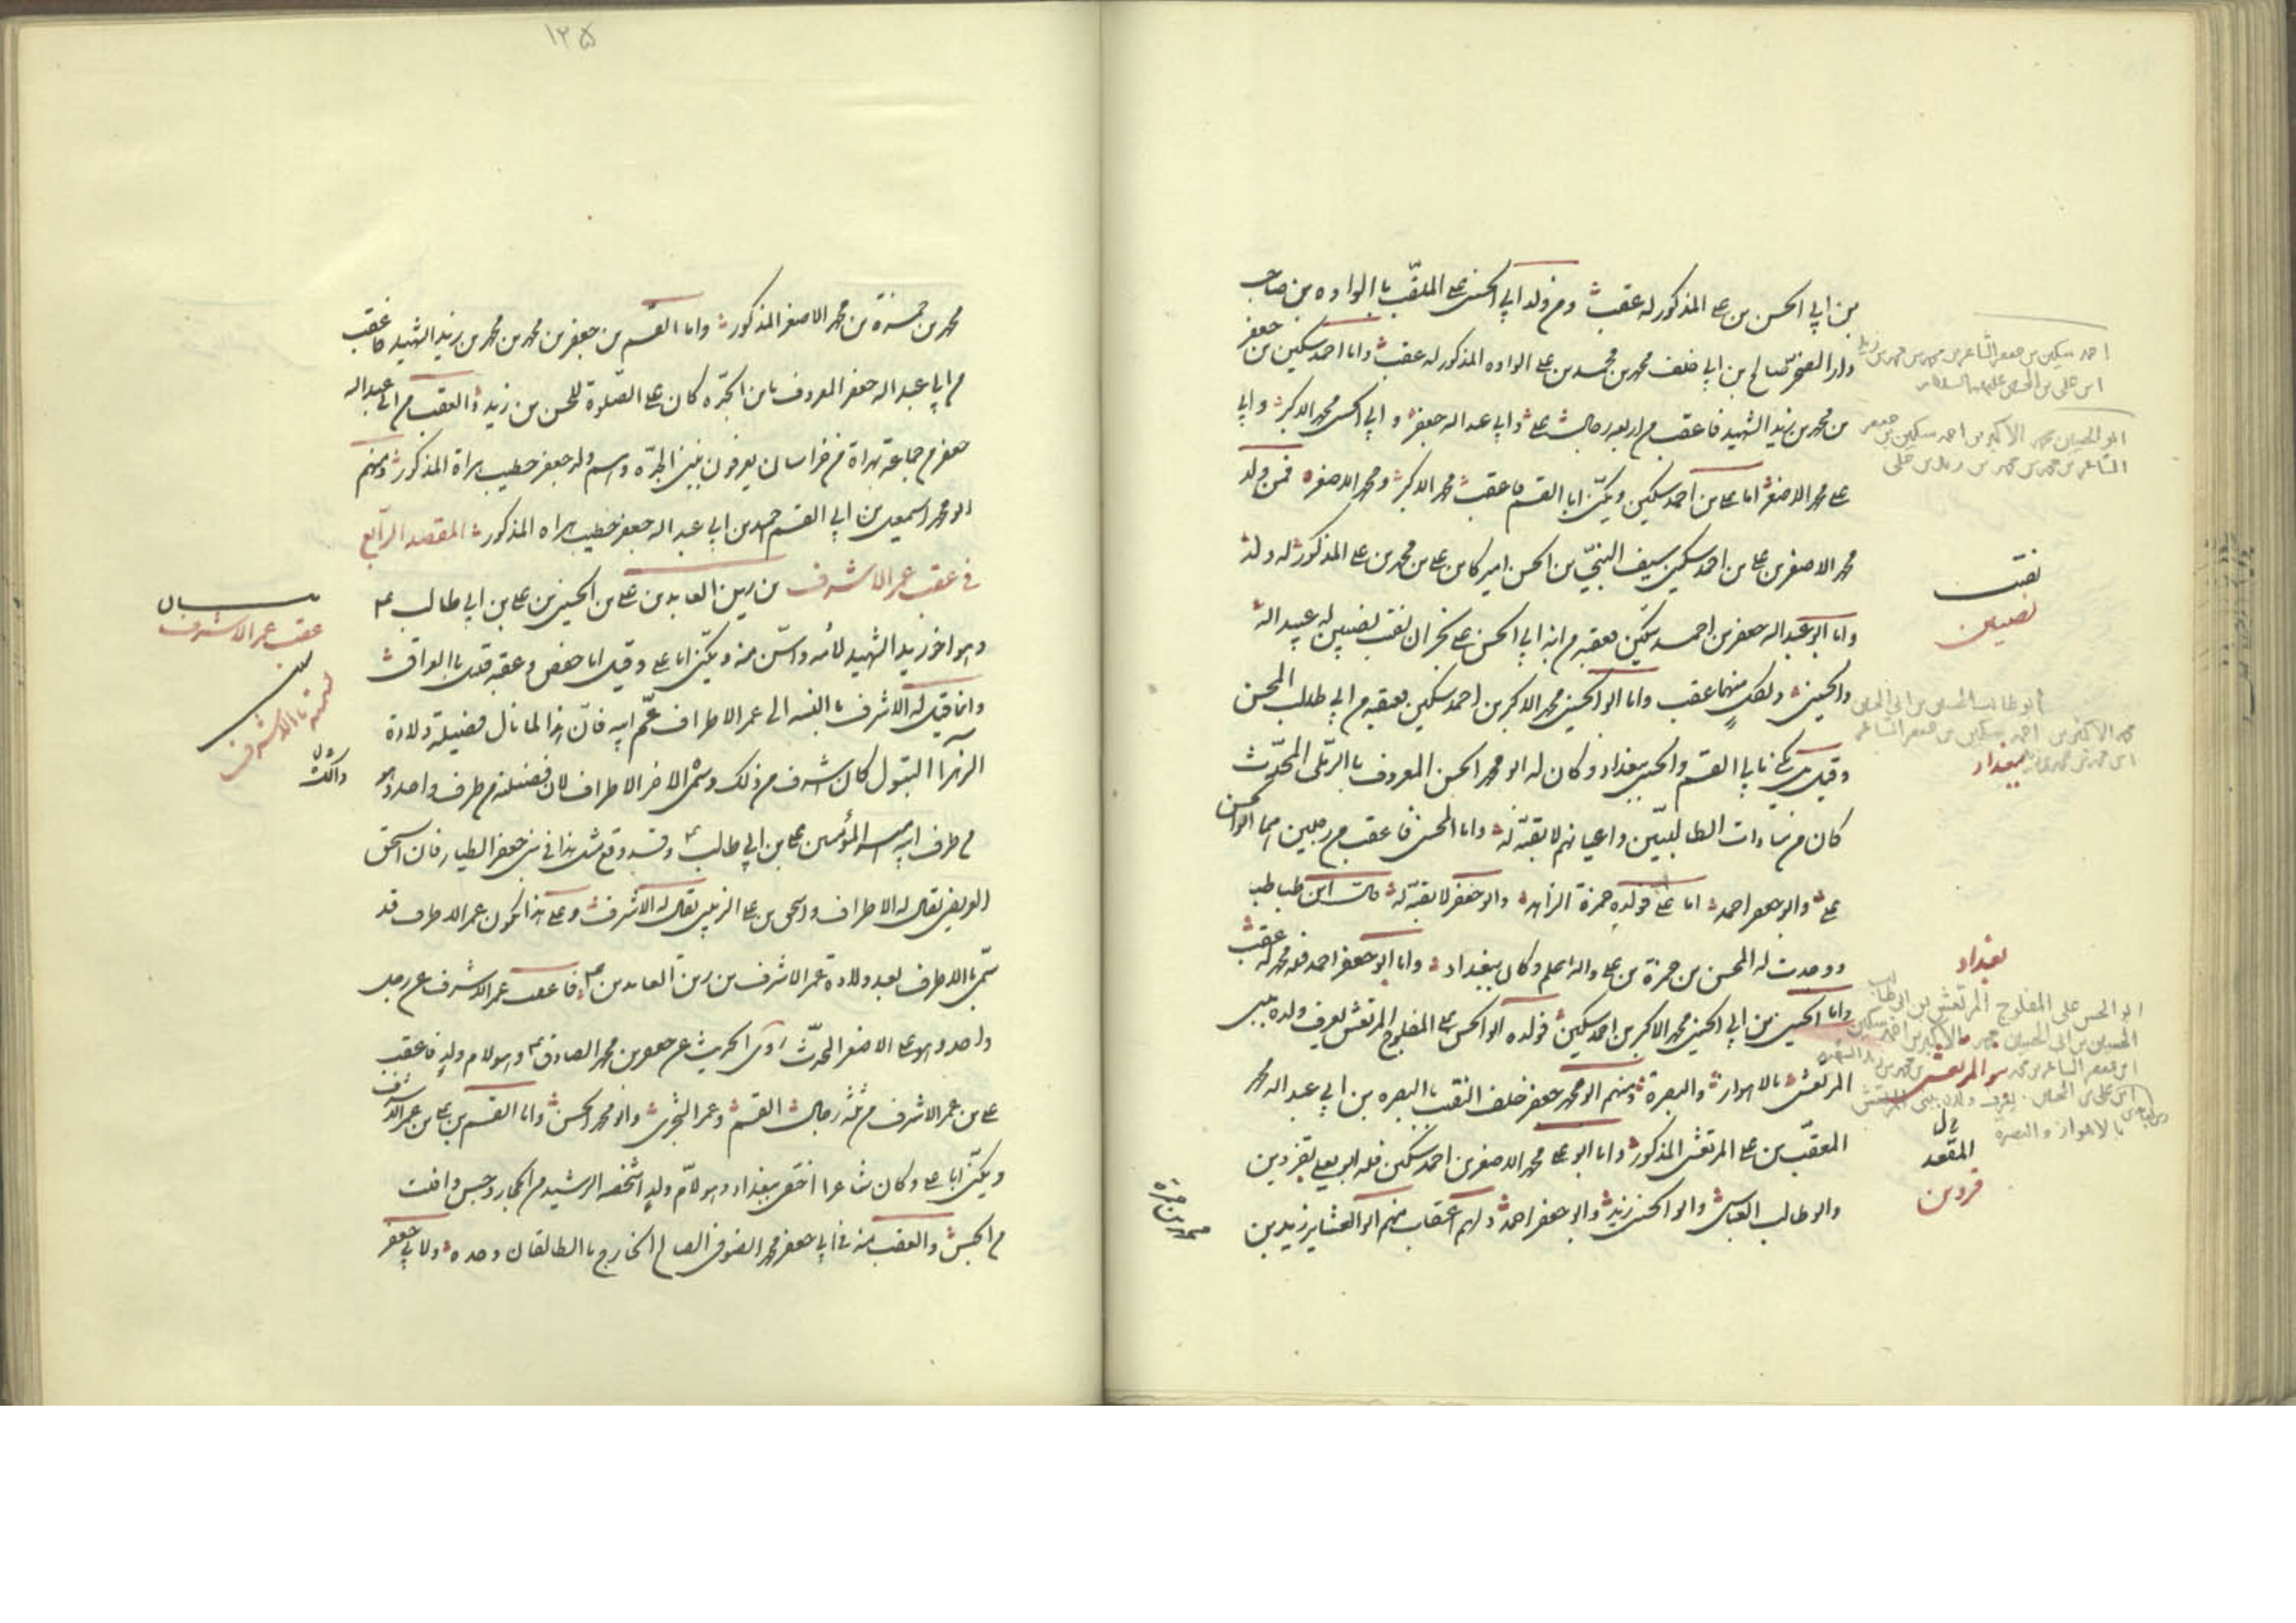 بن ابي الحسن بن علي المذكور له عقب ومن ولد ابي الحسن علي الملقب بالواوه بن صاحب
ولد الفخر صالح بن ابي خلف محمد بن محمد بن علي الواوه المذكور له عقب واما احمد سكين بن جعفر
بن محمد بن زيد الشهيد فاعقب من اربعة رجال علي وابي عبد الله جعفر وابي الحسين محمد الاكبر وابي
علي محمد الاصغر اما علي بن احمد سكين ويكنى ابا القسم فاعقب محمد الاكبر ومحمد الاصغر فمن ولد
محمد الاصغر بن علي بن احمد سكين سيف النبي بن الحسن اميركا بن علي بن محمد بن علي المذكور له ولد
واما ابو عبد الله جعفر بن احمد سكين فعقبه من ابنه ابي الحسن علي بنجران نقيب نصيبين له عبيد الله
والحسين ولكل منهما عقب واما ابو الحسين محمد الاكبر بن احمد سكين فعقبه من ابي طالب المحسن
وقيل يكنى بابي القسم والحسين ببغداد وكان له ابو محمد الحسن المعروف بالرملي المحدث
كان من سادات الطالبيين واعيانهم لا بقية له واما المحسن فاعقب من رجلين هما ابو الحسن
علي وابو جعفر احمد اما علي فولده حمزة الزاهد وابو جعفر لا بقية له قال ابن طباطبا
ووجدت له المحسن بن حمزة بن علي والله اعلم وكان ببغداد واما ابو جعفر احمد فله محمد له عقب
واما الحسين بن ابي الحسين محمد الاكبر بن احمد سكين فولده ابو الحسن علي المفلوج المرتعش يعرف ولده ببني
المرتعش بالاهواز والبصرة ومنهم ابو محمد جعفر خلف النقيب بالبصره بن ابي عبد الله محمد
المعقب بن علي المرتعش المذكور واما ابو علي محمد الاصغر بن احمد سكين فله ابو يعلي بقزوين
وابو طالب العباس وابو الحسين زيد وابو جعفر احمد ولهم اعقاب منهم ابو العشاير زيد بن
محمد بن حمزة
احمد سكين بن جعفر الشاعر بن محمد بن محمد بن زيد
ابن علي بن الحسين عليهما السلام
ابو الحسين محمد الاكبر بن احمد سكين بن جعفر
الشاعر بن محمد بن محمد بن زيد بن علي
نقيب
نصيبين
ابو طالب المحسن بن ابي الحسين
محمد الاكبر بن احمد سكين بن جعفر الشاعر
ابن محمد بن محمد بن
ببغداد
بغداد
ابو الحسن علي المفلوج المرتعش بن ابي طالب
الحسين بن ابي الحسين محمد الاكبر بن احمد سكين
بنو المرتعش
بالاهواز والبصرة
قزوين
١٢٥
محمد بن حمزة بن محمد الاصغر المذكور واما القسم بن جعفر بن محمد بن محمد بن زيد الشهيد فاعقب
من ابي عبد الله جعفر المعروف بابن الجده كان علي الصلوة للحسن بن زيد والعقب من ابي عبد الله
جعفر من جماعة بهراة من خراسان يعرفون ببني الجده واسم ولد جعفر خطيب هراة المذكور ومنهم
ابو محمد اسمعيل بن ابي القسم احمد بن ابي عبد الله جعفر خطيب هراه المذكور المقصد الرابع
في عقب عمر الاشرف بن زين العابدين علي بن الحسين بن علي بن ابي طالب ع
وهو اخو زيد الشهيد لامه واسن منه ويكنى ابا علي وقيل ابا حفص وعقبه قليل بالعراق
وانما قيل له الاشرف بالنسبة الى عمر الاطراف عم ابيه فان هذا لما نال فضيلة ولادة
الزهرا البتول كان اشرف من ذلك وسمى الاخر الاطراف لان فضيلته من طرف واحد وهو
من طرف ابيه امير المؤمنين علي بن ابي طالب ع وقد وقع مثل هذا في بني جعفر الطيار فان اسحق
العريضي يقال له الاطراف واسحق بن علي الزينبي يقال له الاشرف وعلى هذا يكون عمر الاطراف قد
سمي بالاطراف بعد ولادة عمر الاشرف بن زين العابدين ع فاعقب عمر الاشرف عن رجل
واحد وهو علي الاصغر المحدث روى الحديث عن جعفر بن محمد الصادق ع وهو لام ولد فاعقب
علي بن عمر الاشرف من ثلثة رجال القسم وعمر الشجري وابو محمد الحسن واما القسم بن علي بن عمر الاشرف
ويكنى ابا علي وكان شاعرا اختفى ببغداد وهو لام ولد اشخصه الرشيد من الحجاز وحبس وافلت
من الحبس والعقب منه في ابي جعفر محمد الصوفي الصالح الخارج بالطالقان وحده ولابي جعفر
بيان
عقب عمر الاشرف
تسميته بالاشرف